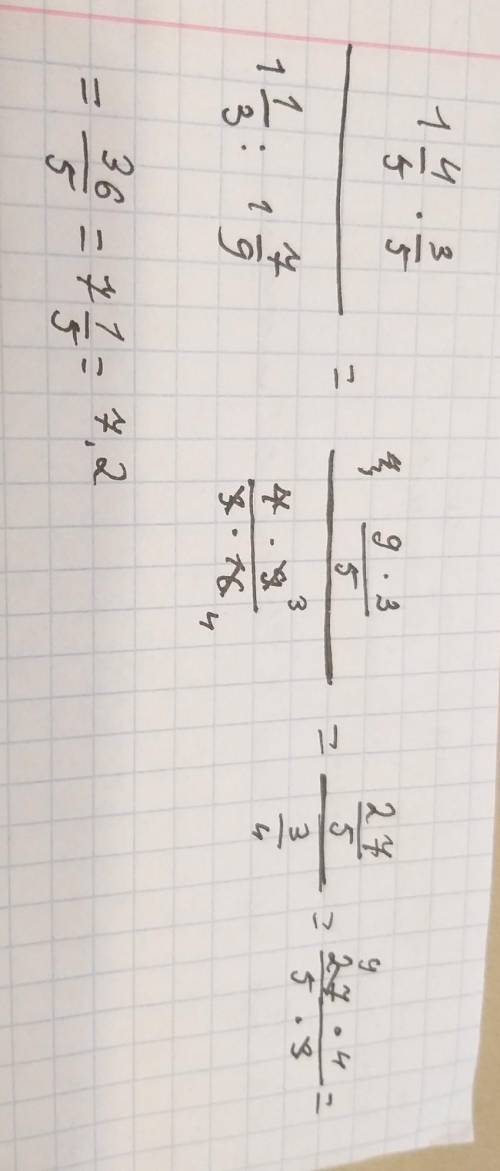 1 4/5 · 3/5 / 1 1/3 : 1 7/9 = 9 · 3/5 / 4 · 9 3/3 · 16 4 = 27/5 / 3/4 = 9 27 · 4/5 · 3 =
= 36/5 = 7 1/5 = 7,2